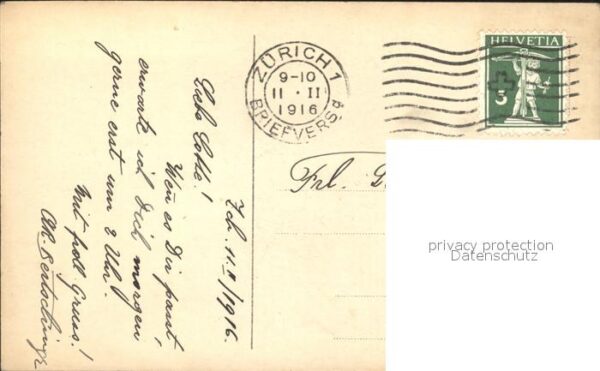 Zch. 11.II/1916.
Liebe Lotte!
Wenn es Dir passt,
erwarte ich Dich morgen
gerne erst um 8 Uhr.
Mit frdl. Gruss!
ZÜRICH 1
9-10
11 · II
1916
BRIEFVERSd
HELVETIA
5
Frl.
privacy protection
Datenschutz